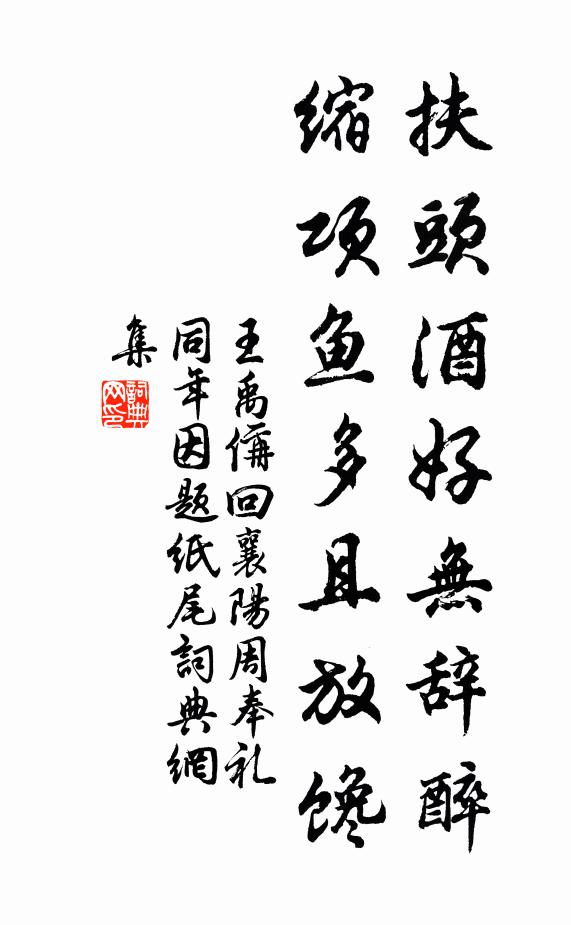 扶頭酒好無辞醉
缩项鱼多且放馋
王禹偁回襄陽周奉礼
同年因题紙尾詞典網
集
詞典
网印